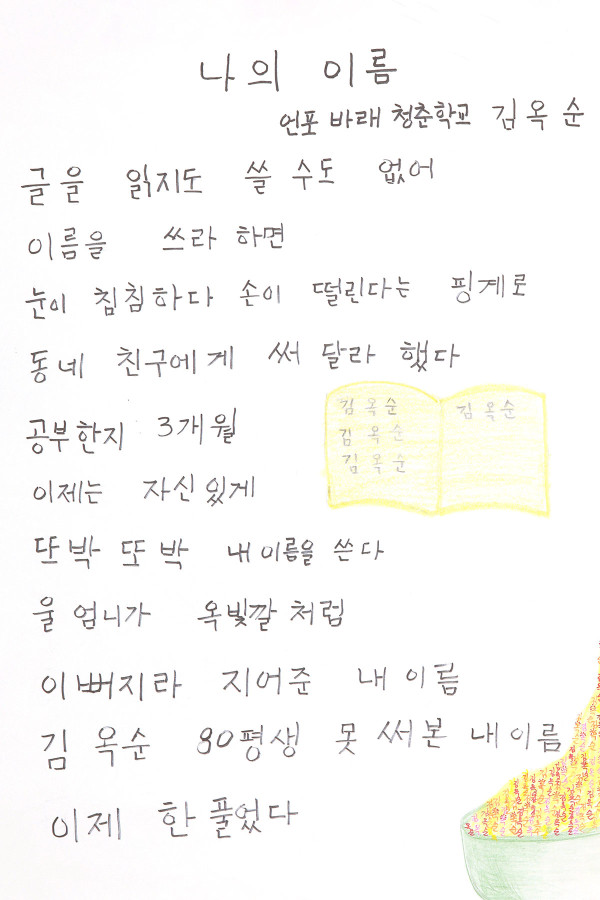 나의 이름
언포 바래 청춘학교 김옥순
글을 읽지도 쓸 수도 없어
이름을 쓰라 하면
눈이 침침하다 손이 떨린다는 핑계로
동네 친구에게 써 달라 했다
김옥순 김옥순
김옥순
김옥순
공부한지 3개월
이제는 자신있게
또박 또박 내 이름을 쓴다
울 엄니가 옥빛깔 처럼
이뻐지라 지어준 내 이름
김옥순 80평생 못 써본 내 이름
이제 한 풀었다